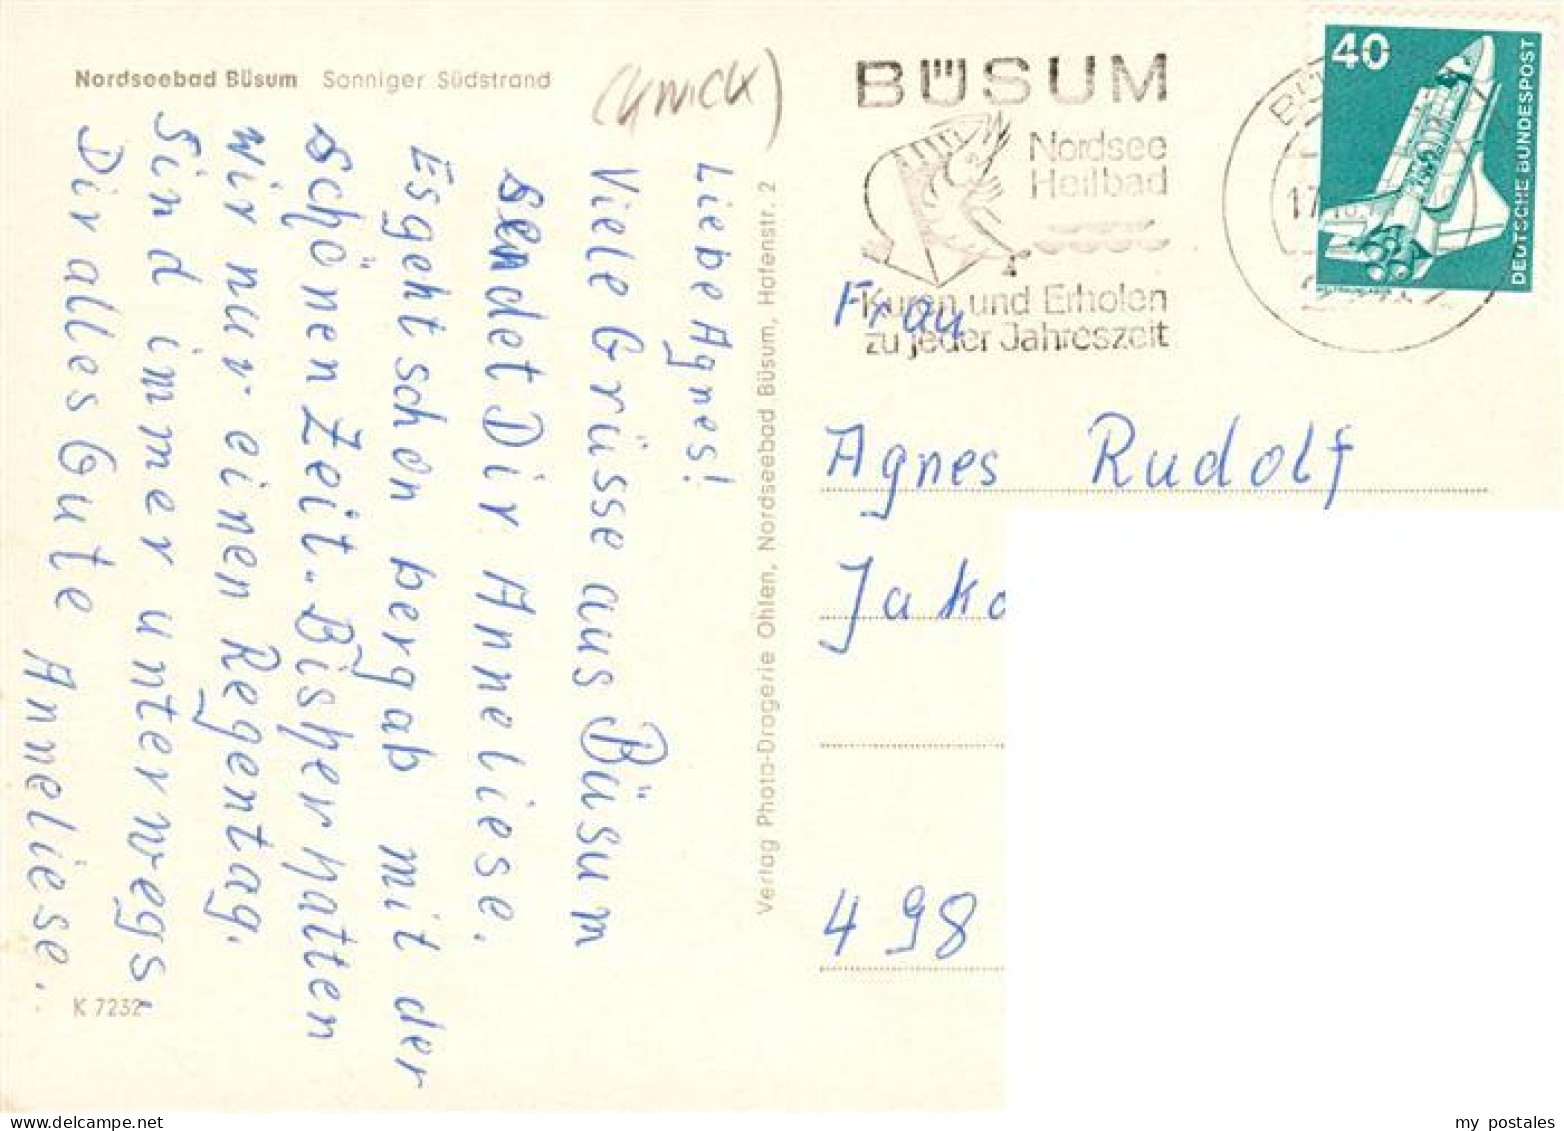 Nordseebad Büsum Sonniger Südstrand
(Knick)
Liebe Agnes!
Viele Grüsse aus Büsum
sendet Dir Anneliese.
Es geht schon bergab mit der
schönen Zeit. Bisher hatten
wir nur einen Regentag.
Sind immer unterwegs.
Dir alles Gute Anneliese.
K 7232
Verlag Photo-Drogerie Ohlen, Nordseebad Büsum, Hafenstr. 2
BÜSUM
Nordsee
Heilbad
Kuren und Erholen
zu jeder Jahreszeit
40
DEUTSCHE BUNDESPOST
Frau
Agnes Rudolf
Jako
498
my postales